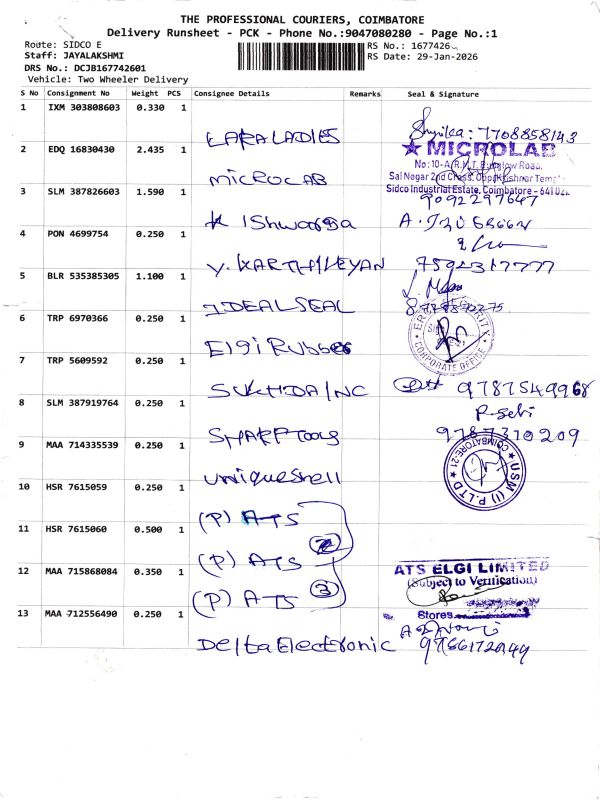 THE PROFESSIONAL COURIERS, COIMBATORE
Delivery Runsheet - PCK - Phone No.:9047080280 - Page No.:1
Route: SIDCO E
RS No.: 1677426
Staff: JAYALAKSHMI
RS Date: 29-Jan-2026
DRS No.: DCJB167742601
Vehicle: Two Wheeler Delivery
S No Consignment No Weight PCS Consignee Details Remarks Seal & Signature
1 IXM 303808603 0.330 1
LARALADIES 7708858143
2 EDQ 16830430 2.435 1
MICROLAB
No:10-A
Sai Nagar 2nd Cross,
Sidco Industrial Estate, Coimbatore - 641
MICROLAB
3 SLM 387826603 1.590 1
9092297647
K Ishwarya
4 PON 4699754 0.250 1
Y. KARTHIKEYAN
5 BLR 535385305 1.100 1
IDEALSEAL
6 TRP 6970366 0.250 1
Elgi Rubber
CORPORATE OFFICE
7 TRP 5609592 0.250 1
SUKHDA INC 9787549968
8 SLM 387919764 0.250 1
SHARPTOOLS 9787310209
9 MAA 714335539 0.250 1
uniqueshell
COIMBATORE-21 USM (I) P.LTD
10 HSR 7615059 0.250 1
(P) ATS
11 HSR 7615060 0.500 1
(P) ATS
12 MAA 715868084 0.350 1
(P) ATS
3
ATS ELGI LIMITED
(Subject to Verification)
Stores
13 MAA 712556490 0.250 1
Delta Electronic